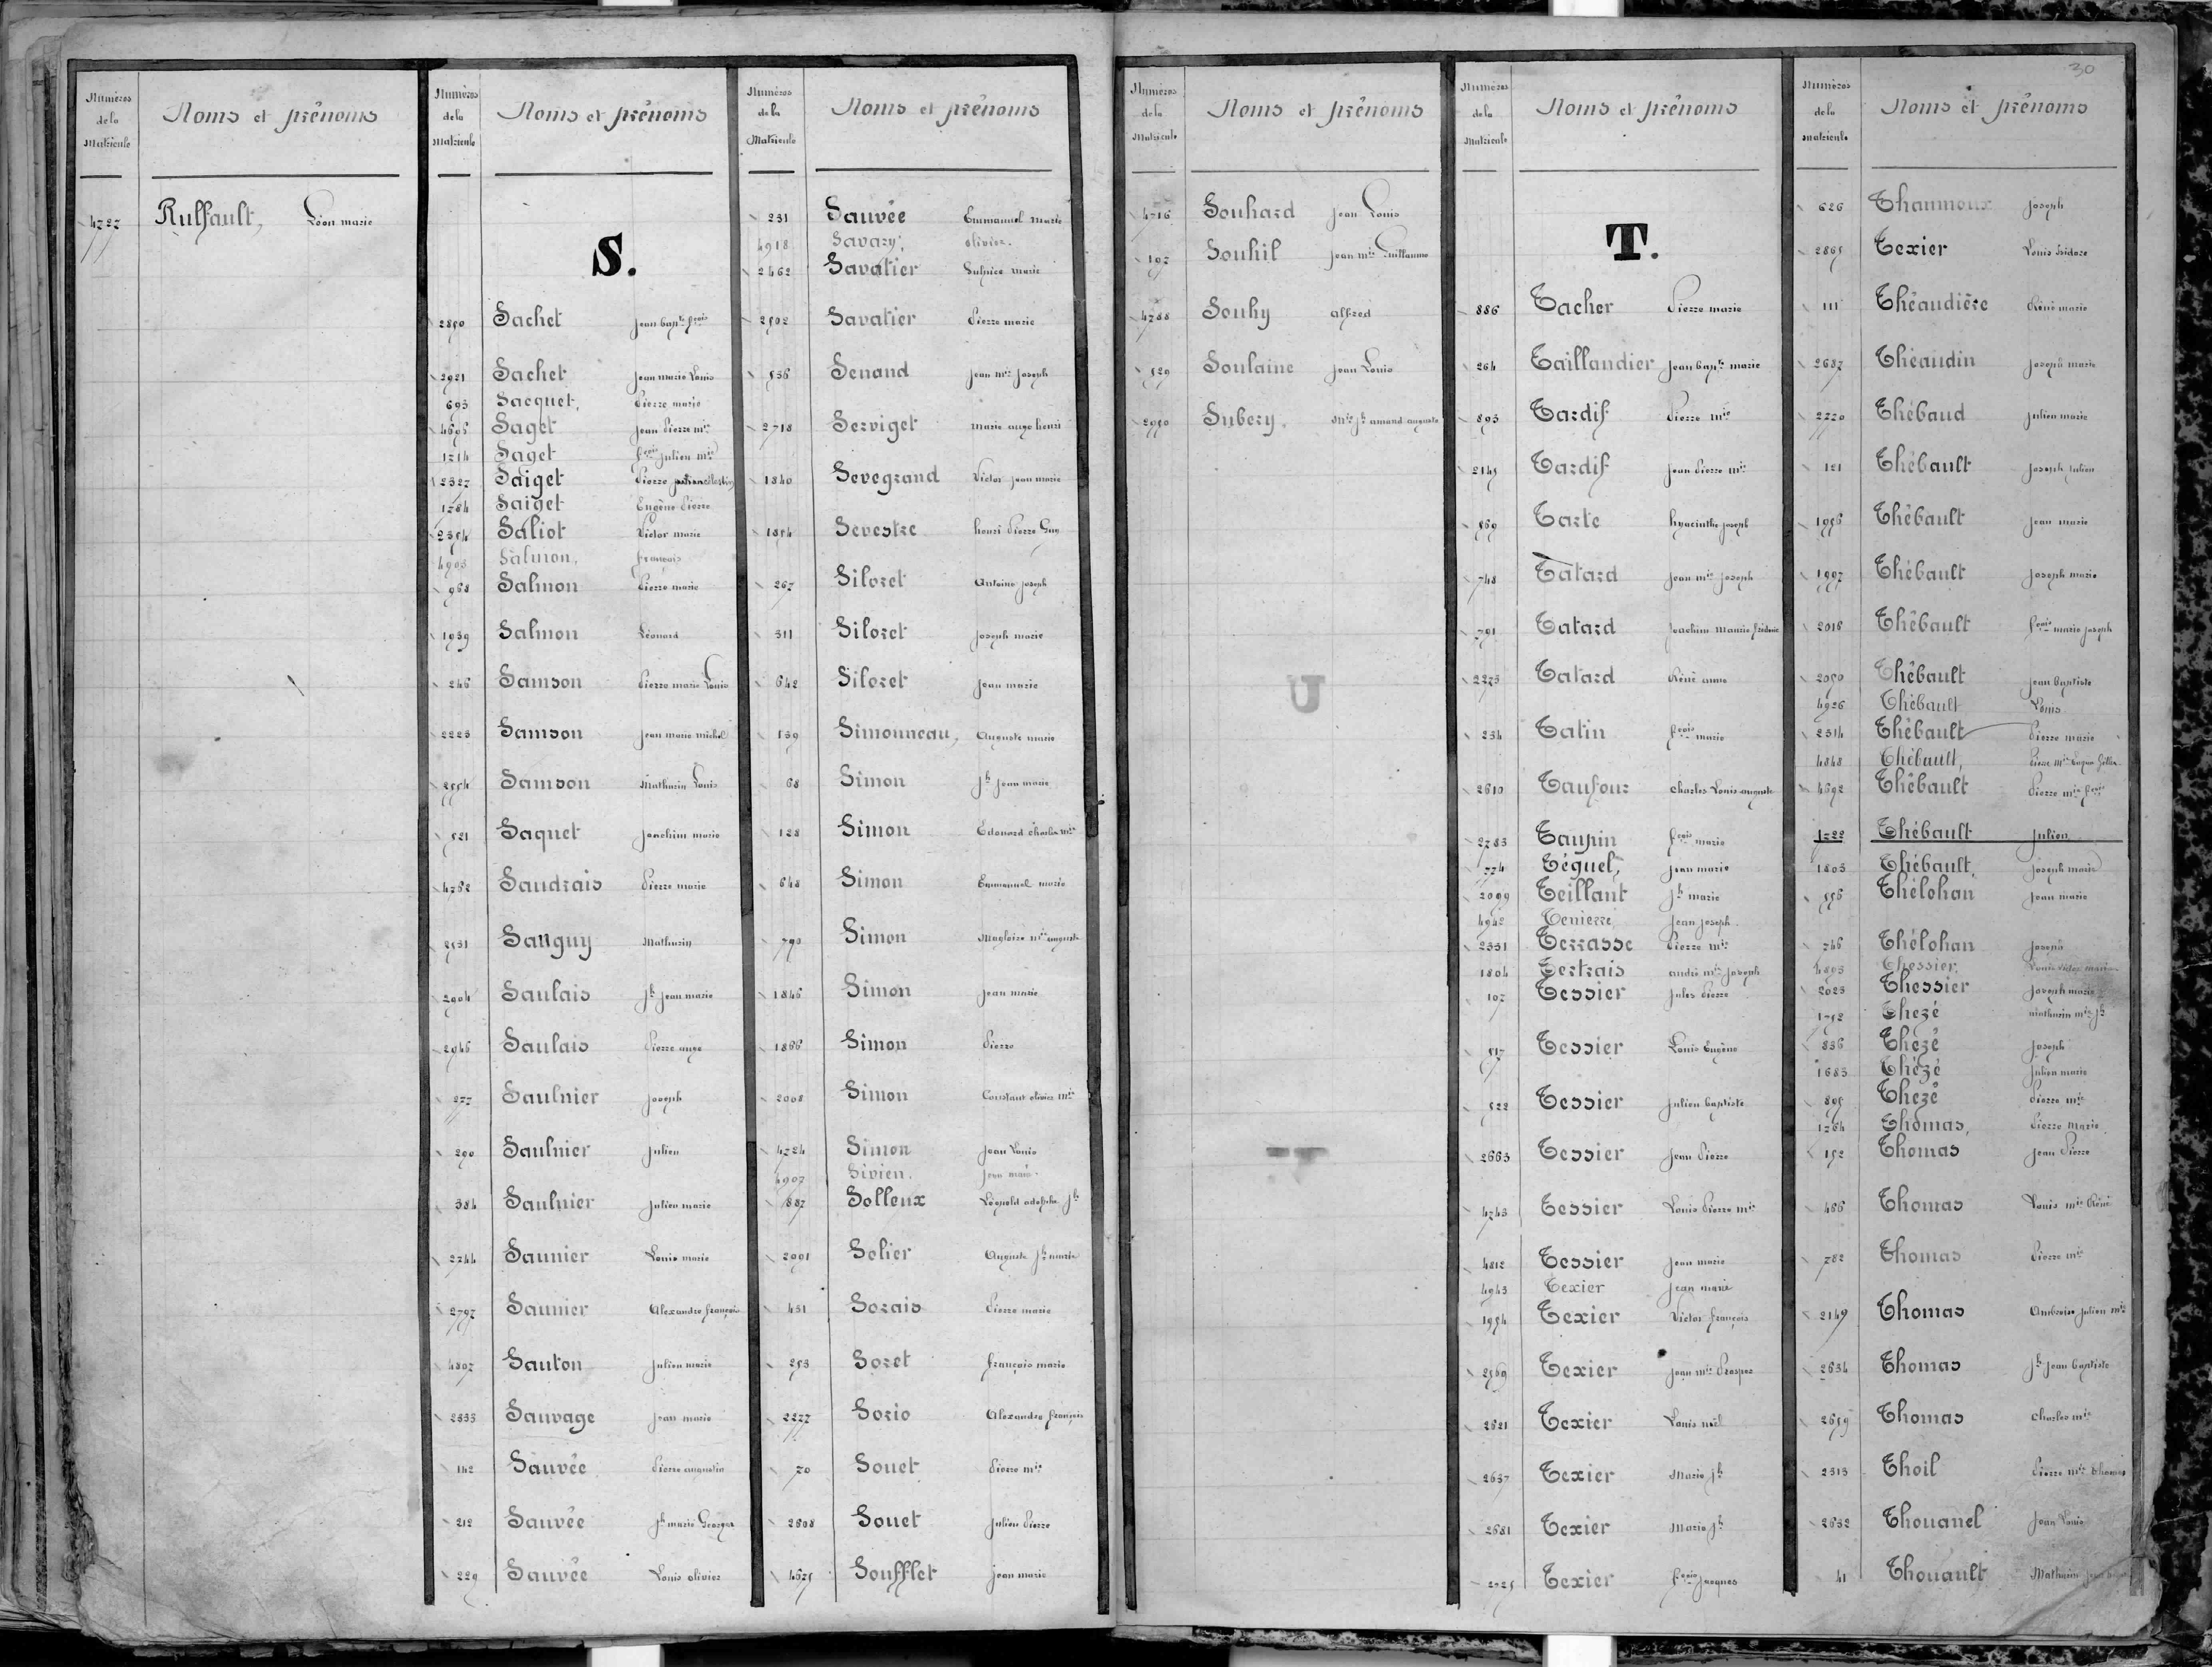 30
Numéros de la Matricule Noms et prénoms
4727 Ruffault, Léon marie
Numéros de la Matricule Noms et prénoms
S.
2890 Sachet Jean bapte frois
2921 Sachet Jean marie Louis
693 Sacquet, Pierre marie
4695 Saget Jean Pierre mie
1714 Saget frois Julien mie
2327 Saiget Pierre
1784 Saiget Eugène Pierre
2354 Saliot Victor marie
4903 Salmon, françois
968 Salmon Pierre marie
1939 Salmon Léonard
246 Samson Pierre marie Louis
2223 Samson Jean marie michel
2554 Samson Mathurin Louis
521 Saquet Joachim marie
4762 Saudrais Pierre marie
2531 Sauguy Mathurin
2904 Saulais Jh Jean marie
2946 Saulais Pierre ange
277 Saulnier Joseph
290 Saulnier Julien
384 Saulnier Julien marie
2744 Saunier Louis marie
2797 Saunier Alexandre françois
4807 Sauton Julien marie
2333 Sauvage Jean marie
142 Sauvée Pierre augustin
212 Sauvée Jh marie Georges
229 Sauvée Louis olivier
Numéros de la Matricule Noms et prénoms
231 Sauvée Emmanuel marie
4918 Savary, olivier.
2462 Savatier Sulpice marie
2502 Savatier Pierre marie
536 Senand Jean mie Joseph
2718 Serviget marie ange henri
1840 Sevegrand Victor Jean marie
1854 Sevestre henri Pierre Guy
267 Siloret Antoine Joseph
311 Siloret Joseph marie
642 Siloret Jean marie
139 Simonneau, Auguste marie
68 Simon Jh Jean marie
128 Simon Edouard charles mie
648 Simon Emmanuel marie
790 Simon Magloire mie auguste
1846 Simon Jean marie
1866 Simon Pierre
2008 Simon Constant olivier mie
4724 Simon Jean Louis
4907 Sivien. Jean marie
887 Solleux Léopold adolphe Jh
2091 Solier Auguste Jh marie
451 Sorais Pierre marie
253 Soret françois marie
2277 Sorio Alexandre françois
70 Souet Pierre mie
2808 Souet Julien Pierre
4625 Soufflet Jean marie
Numéros de la Matricule Noms et prénoms
4716 Souhard Jean Louis
197 Souhil Jean mie Guillaume
4788 Souhy alfred
529 Soulaine Jean Louis
2950 Subery. mie Jh amand auguste
U
Numéros de la Matricule Noms et prénoms
T.
886 Tacher Pierre marie
264 Taillandier Jean bapte marie
893 Tardif Pierre mie
2145 Tardif Jean Pierre mie
869 Tarte hyacinthe Joseph
748 Tatard Jean mie Joseph
791 Tatard Joachim
2273 Tatard Réné anne
234 Tatin frois marie
2610 Taufour charles Louis auguste
2783 Taupin frois marie
774 Téguel, Jean marie
2099 Teillant Jh marie
4942 Tenierre Jean Joseph
2331 Terrasse Pierre mie
1804 Tertrais andré mie Joseph
107 Tessier Jules Pierre
517 Tessier Louis Eugène
522 Tessier Julien baptiste
2663 Tessier Jean Pierre
4743 Tessier Louis Pierre mie
4812 Tessier Jean marie
4943 Texier Jean marie
1954 Texier Victor françois
2569 Texier Jean mie Prosper
2621 Texier Louis noël
2637 Texier Marie Jh
2681 Texier Marie Jh
2725 Texier frois Jacques
Numéros de la matricule Noms et prénoms
626 Thaumoux Joseph
2865 Texier Louis Isidore
111 Théaudière Réné marie
2687 Théaudin Joseph marie
2220 Thébaud Julien marie
121 Thébault Joseph Julien
1956 Thébault Jean marie
1997 Thébault Joseph marie
2016 Thébault frois marie Joseph
2050 Thébault Jean baptiste
4926 Thébault Louis
2314 Thébault Pierre marie
4848 Thébault, Pierre mie
4692 Thébault Pierre mie frois
1722 Thébault Julien
1803 Thébault, Joseph marie
556 Thélohan Jean marie
746 Thélohan Joseph
4893 Thessier. Louis Victor marie
2023 Thessier Joseph marie
1752 Thezé mathurin mie Jh
836 Thezé Joseph
1683 Thézé Julien marie
895 Thezé Pierre mie
1764 Thomas, Pierre Marie
152 Thomas Jean Pierre
466 Thomas Louis mie Réné
782 Thomas Pierre mie
2149 Thomas Ambroise Julien mie
2634 Thomas Jh Jean baptiste
2659 Thomas charles mie
2313 Thoil Pierre mie thomas
2632 Thouanel Jean Louis
41 Thouault Mathurin